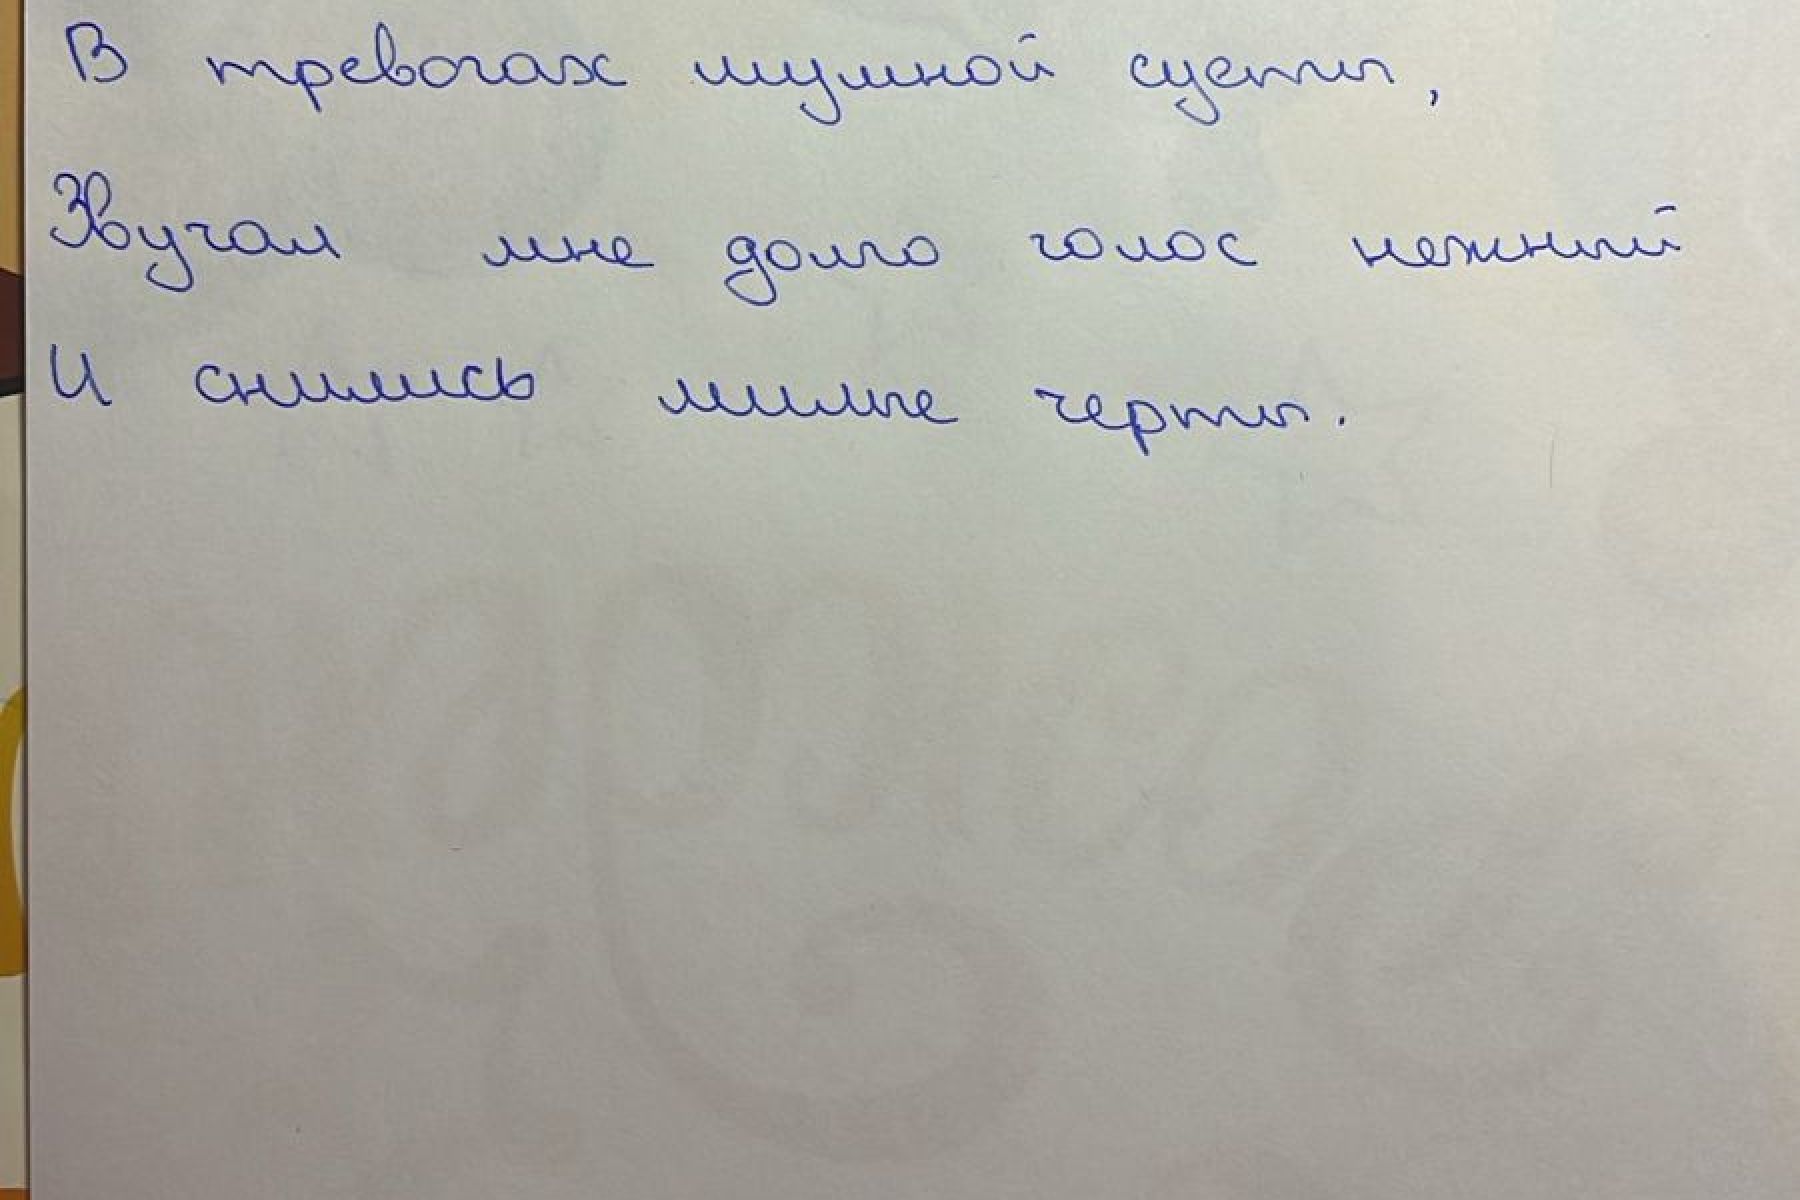 В тревогах шумной суеты,
Звучал мне долго голос нежный
И снились милые черты.